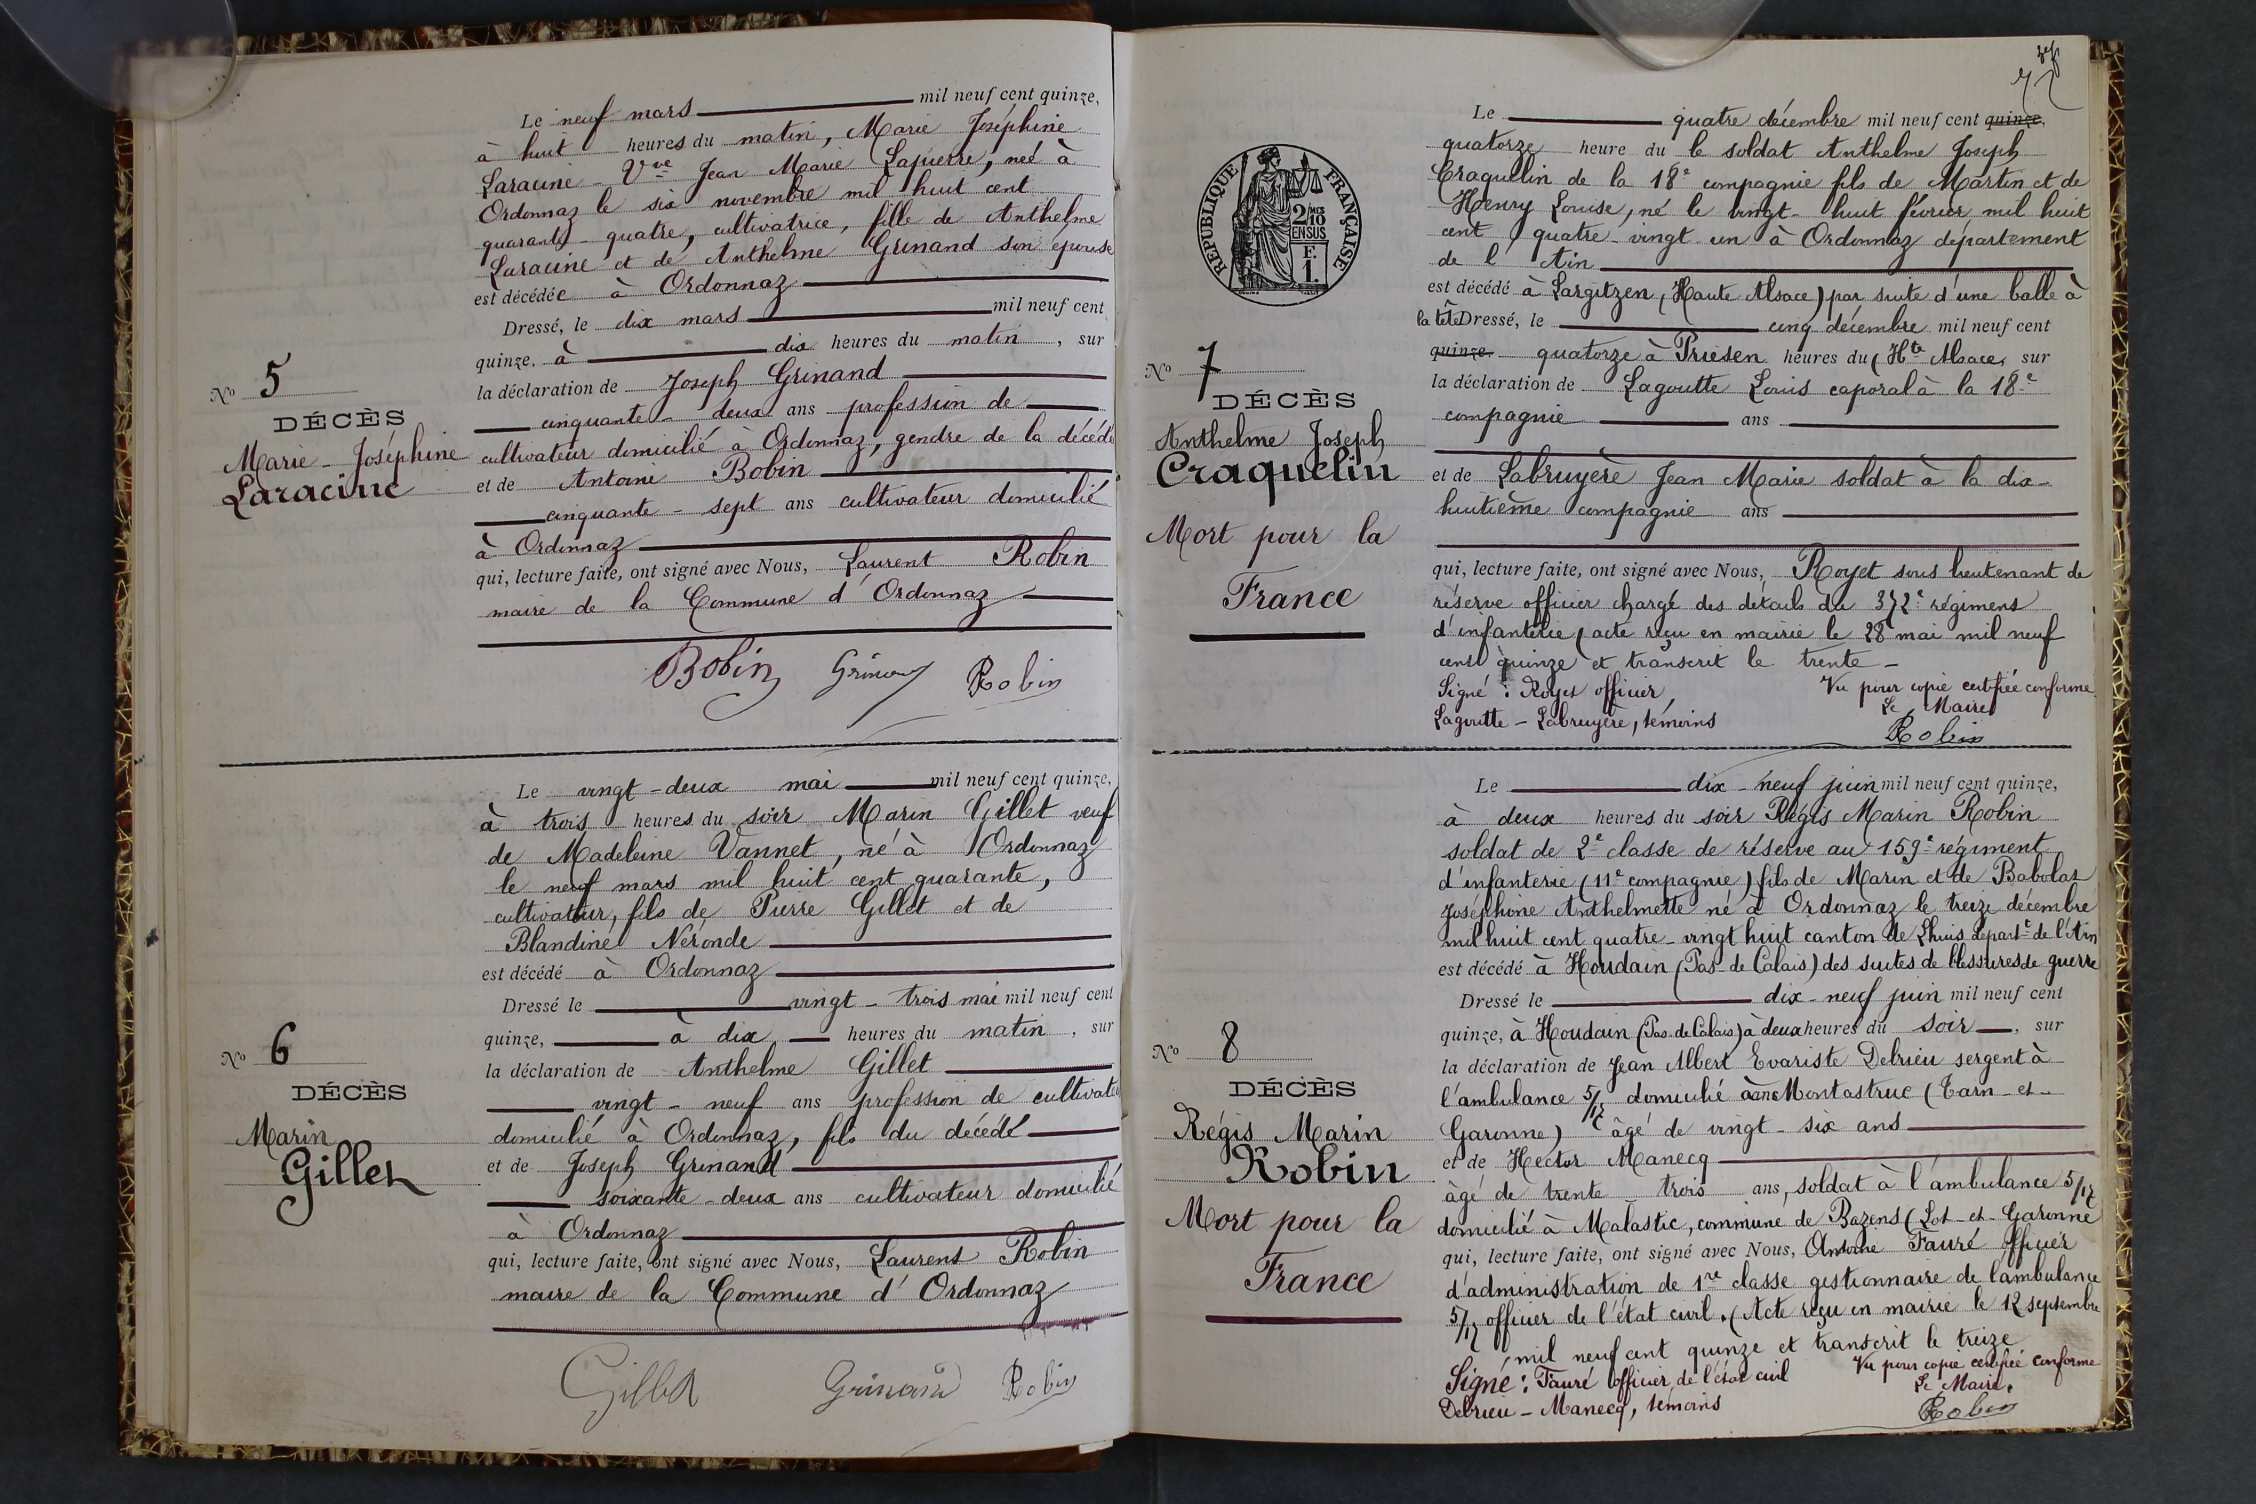 Le neuf mars mil neuf cent quinze,
à huit heures du matin, Marie Joséphine
Laracine Vve Jean Marie Lapierre, née à
Ordonnaz le six novembre mil huit cent
quarante-quatre, cultivatrice, fille de Anthelme
Laracine et de Anthelme Grinand son épouse
est décédée à Ordonnaz
Dressé, le dix mars mil neuf cent
quinze, à dix heures du matin, sur
la déclaration de Joseph Grinand
cinquante-deux ans profession de
cultivateur domicilié à Ordonnaz, gendre de la décédé
et de Antoine Bobin
cinquante-sept ans cultivateur domicilié
à Ordonnaz
qui, lecture faite, ont signé avec Nous, Laurent Robin
maire de la Commune d'Ordonnaz
Bobin Grinand Robin
No 5
DÉCÈS
Marie-Joséphine
Laracine
Le vingt-deux mai mil neuf cent quinze,
à trois heures du soir Marin Gillet veuf
de Madeleine Vannet, né à Ordonnaz
le neuf mars mil huit cent quarante,
cultivateur, fils de Pierre Gillet et de
Blandine Néronde
est décédé à Ordonnaz
Dressé le vingt-trois mai mil neuf cent
quinze, à dix heures du matin, sur
la déclaration de Anthelme Gillet
vingt-neuf ans profession de cultivate
domicilié à Ordonnaz, fils du décédé
et de Joseph Grinand
soixante-deux ans cultivateur domicilié
à Ordonnaz
qui, lecture faite, ont signé avec Nous, Laurent Robin
maire de la Commune d'Ordonnaz
Gillet Grinand Robin
No 6
DÉCÈS
Marin
Gillet
RÉPUBLIQUE FRANÇAISE
2/10 MES
EN SUS
F.
1.
Le quatre décembre mil neuf cent quinze,
quatorze heure du le soldat Anthelme Joseph
Craquelin de la 18e compagnie fils de Martin et de
Henry Louise, né le vingt-huit février mil huit
cent quatre-vingt un à Ordonnaz département
de l'Ain
est décédé à Largitzen (Haute Alsace) par suite d'une balle à
la tête Dressé, le cinq décembre mil neuf cent
quinze. quatorze à Friesen heures du (Hte Alsace, sur
la déclaration de Lagoutte Louis caporal à la 18e
compagnie ans
et de Labruyère Jean Marie soldat à la dix-
huitième compagnie ans
qui, lecture faite, ont signé avec Nous, Royet sous lieutenant de
réserve officier chargé des détails du 372e régiment
d'infanterie (acte reçu en mairie le 28 mai mil neuf
cent quinze et transcrit le trente-
Signé: Royet officier,
Lagoutte-Labruyère, témoins
Vu pour copie certifiée conforme
Le Maire,
Robin
No 7
DÉCÈS
Anthelme Joseph
Craquelin
Mort pour la
France
Le dix-neuf juin mil neuf cent quinze,
à deux heures du soir Régis Marin Robin
soldat de 2e classe de réserve au 159e régiment
d'infanterie (11e compagnie) fils de Marin et de Babolat
Joséphine Anthelmette né à Ordonnaz le treize décembre
mil huit cent quatre-vingt huit canton de Lhuis départt de l'Ain
est décédé à Houdain (Pas-de Calais) des suites de blessures de guerre
Dressé le dix-neuf juin mil neuf cent
quinze, à Houdain (Pas-de Calais) à deux heures du soir, sur
la déclaration de Jean Albert Evariste Debrieu sergent à
l'ambulance 5/17 domicilié à Montastruc (Tarn-et-
Garonne) âgé de vingt-six ans
et de Hector Manecq
âgé de trente trois ans, soldat à l'ambulance 5/17
domicilié à Malastic, commune de Bazens (Lot-et-Garonne
qui, lecture faite, ont signé avec Nous, Antoine Fauré officier
d'administration de 1re classe gestionnaire de l'ambulance
5/17 officier de l'état civil. (Acte reçu en mairie le 12 septembre
mil neuf cent quinze et transcrit le treize
Signé: Fauré officier de l'état civil
Debrieu-Manecq, témoins
Vu pour copie certifiée conforme
Le Maire.
Robin
No 8
DÉCÈS
Régis Marin
Robin
Mort pour la
France